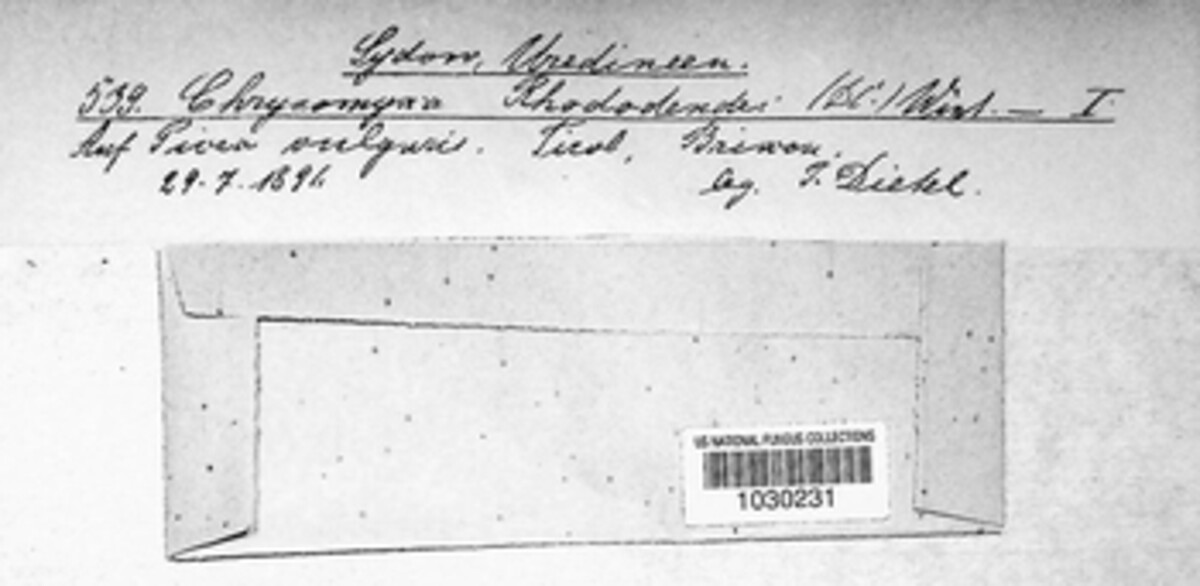 Sydow, Uredineen.
539. Chrysomyxa Rhododendri (DC.) Wint. — I.
Auf Picea vulgaris. Tirol, Brixen.
29. 7. 1891. leg. P. Dietel.
US NATIONAL FUNGUS COLLECTIONS
1030231